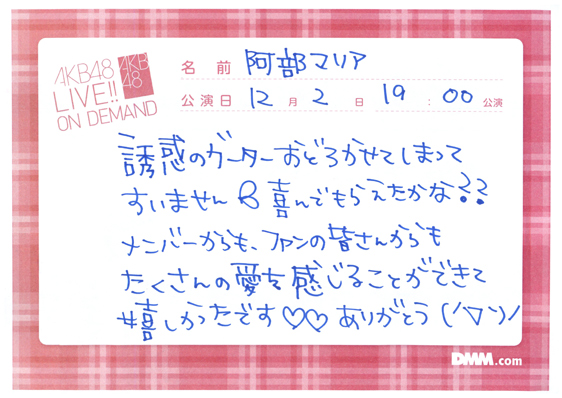 AKB48
LIVE!!
ON DEMAND
AKB
48
名前 阿部マリア
公演日 12月2日 19:00公演
誘惑のガーターおどろかせてしまって
すいませんB喜んでもらえたかな??
メンバーからも、ファンの皆さんからも
たくさんの愛を感じることができて
嬉しかったです♡♡ありがとう(ﾉ▽ﾝ)ﾉ
DMM.com